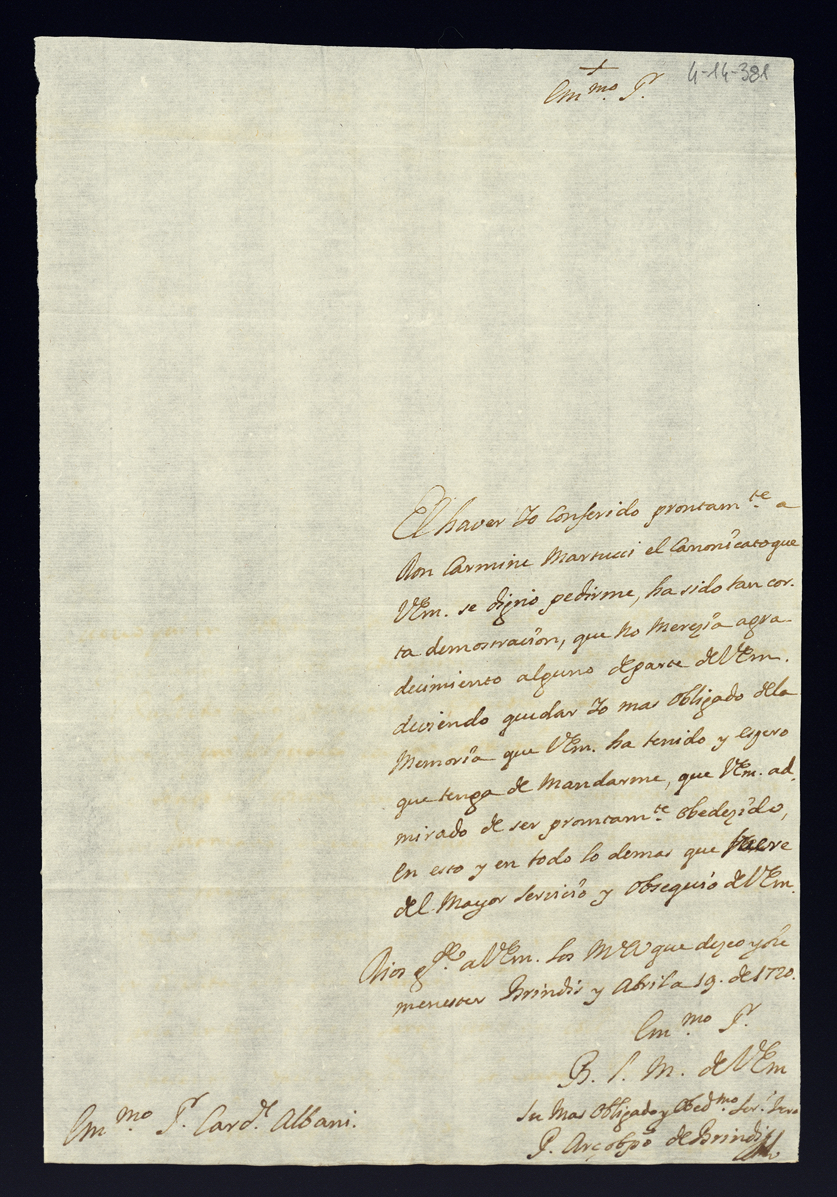 4-14-381
+
Em.mo S.r
El haver Yo conferido prontam.te a
Don Carmine Martucci el Canonicato que
VEm. se digno pedirme, ha sido tan cor-
ta demostracion, que no merezia agra-
decimiento alguno departe de VEm.
deviendo quedar Yo mas obligado dela
Memoria que VEm. ha tenido y espero
que tenga de Mandarme, que VEm. ad-
mirado de ser promtam.te obedezido,
en esto y en todo lo demas que fuere
del Mayor servicio y obsequio de VEm.
Dios g.de a VEm. los m.s a.s que deseo y he
menester Brindis y Abril a 19. de 1720.
Em.mo S.r
B. L. M. de VEm
Su Mas Obligado y Obed.mo Ser.r
P. Arçobpo de Brindis
Em.mo S.r Card.l Albani.